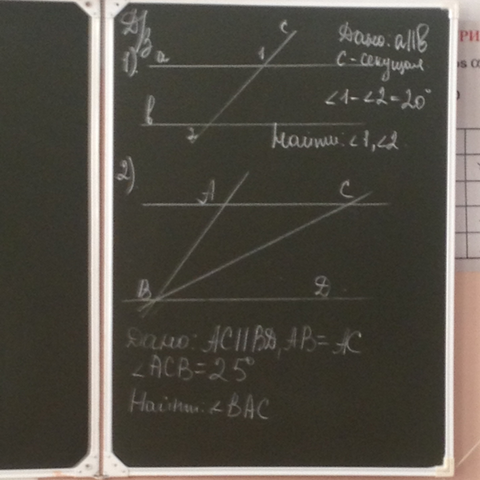 Д/з
1).
a
1
c
Дано: a||b
c-секущая
∠1-∠2=20°
b
2
Найти: ∠1,∠2.
2)
A
C
B
D
Дано: AC||BD, AB=AC
∠ACB=25°
Найти: ∠BAC
РИ
os